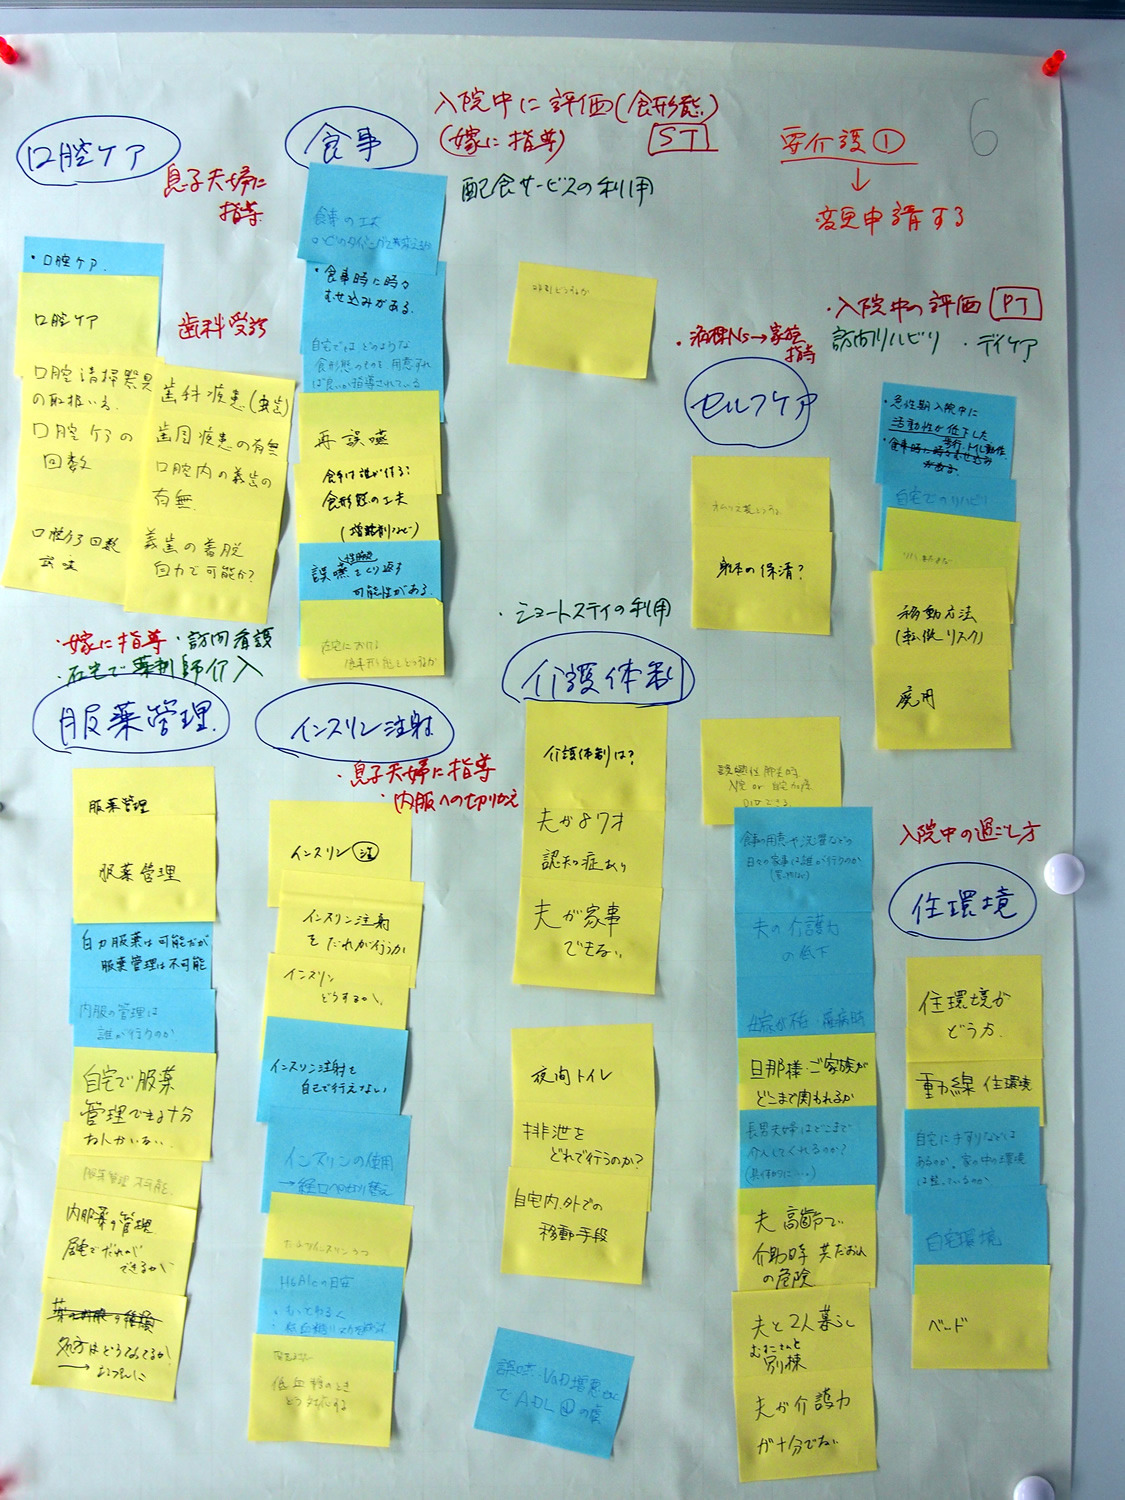 入院中に評価(食形態)
(嫁に指導) ST
6
要介護①
↓
変更申請する
口腔ケア
息子夫婦に
指導
・口腔ケア
口腔ケア
歯科受診
口腔清掃器具
の取扱い
口腔ケアの
回数
口腔ケア回数
歯科疾患(虫歯)
歯周疾患の有無
口腔内の義歯の
有無
義歯の着脱
自力で可能か?
食事
配食サービスの利用
食事の工夫
・食事時に時々
むせ込みがある。
自宅ではどのような
食形態のものを用意すれ
ば良いか指導されている
再誤嚥
食事は誰が作る?
食形態の工夫
誤嚥をくり返す
可能性がある。
在宅における
・病棟Ns→家族
指導
セルフケア
身体の保清?
・入院中の評価 PT
訪問リハビリ ・デイケア
・急性期入院中に
活動性が低下した
歩行、トイレ動作
・食事時に時々むせ込み
がある。
自宅でのリハビリ
移動方法
(転倒リスク)
廃用
・嫁に指導 ・訪問看護
・在宅で薬剤師介入
服薬管理
服薬管理
服薬管理
自力服薬は可能だが
服薬管理は不可能
内服の管理は
誰が行うのか
自宅で服薬
管理できる十分
な人がいない。
服薬管理 不可能
内服薬の管理
居宅でだれが
できるか
処方はどうなってるか?
インスリン注射
・息子夫婦に指導
・内服への切りかえ
インスリン注
インスリン注射
をだれが行うか
インスリン
どうするか
インスリン注射を
自己で行えない
インスリンの使用
→経口への切り替え
HbA1cの目安
低血糖のとき
どう対応する
・ショートステイの利用
介護体制
介護体制は?
夫が87才
認知症あり
夫が家事
できない
夜間トイレ
排泄を
どれで行うのか?
自宅内、外での
移動手段
食事の用意や洗濯などの
日々の家事は誰が行うのか
夫の介護力
の低下
旦那様・ご家族が
どこまで関われるか
長男夫婦はどこまで
介入してくれるのか?
(具体的に…)
夫 高齢で
介助時 共だおれ
の危険
夫と2人暮らし
むすこさんと
別棟
夫が介護力
が十分でない
入院中の過ごし方
住環境
住環境が
どうか
動線 住環境
自宅に手すりなどは
あるのか。家の中の環境
は整っているのか
自宅環境
ベッド